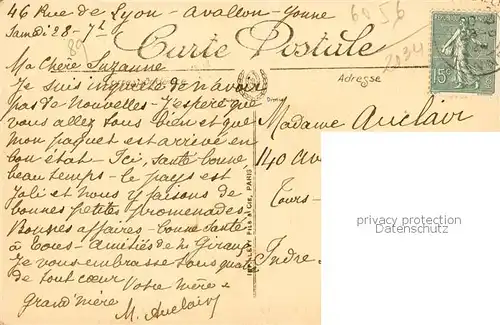 46 Rue de Lyon - Avallon - Yonne
Samedi 28 - 7h
89
6056
2034
Carte Postale
Adresse
RÉPUBLIQUE FRANÇAISE
15c
Ma Chère Suzanne
Je suis inquiète de n'avoir
pas de Nouvelles - J'espère que
vous allez tous bien et que
mon paquet est arrivé en
bon état - Ici, santé bonne,
beau temps - le pays est
Joli et nous y faisons de
bonnes petites promenades
Bonnes affaires - Bonne Santé
à tous - Amitiés de
Je vous embrasse tous quatre
de tout coeur Votre mère &
grand'mère
M. Auclair
Madame Auclair
140 Av
Tours -
Indre -
PARIS
privat photography
watermark